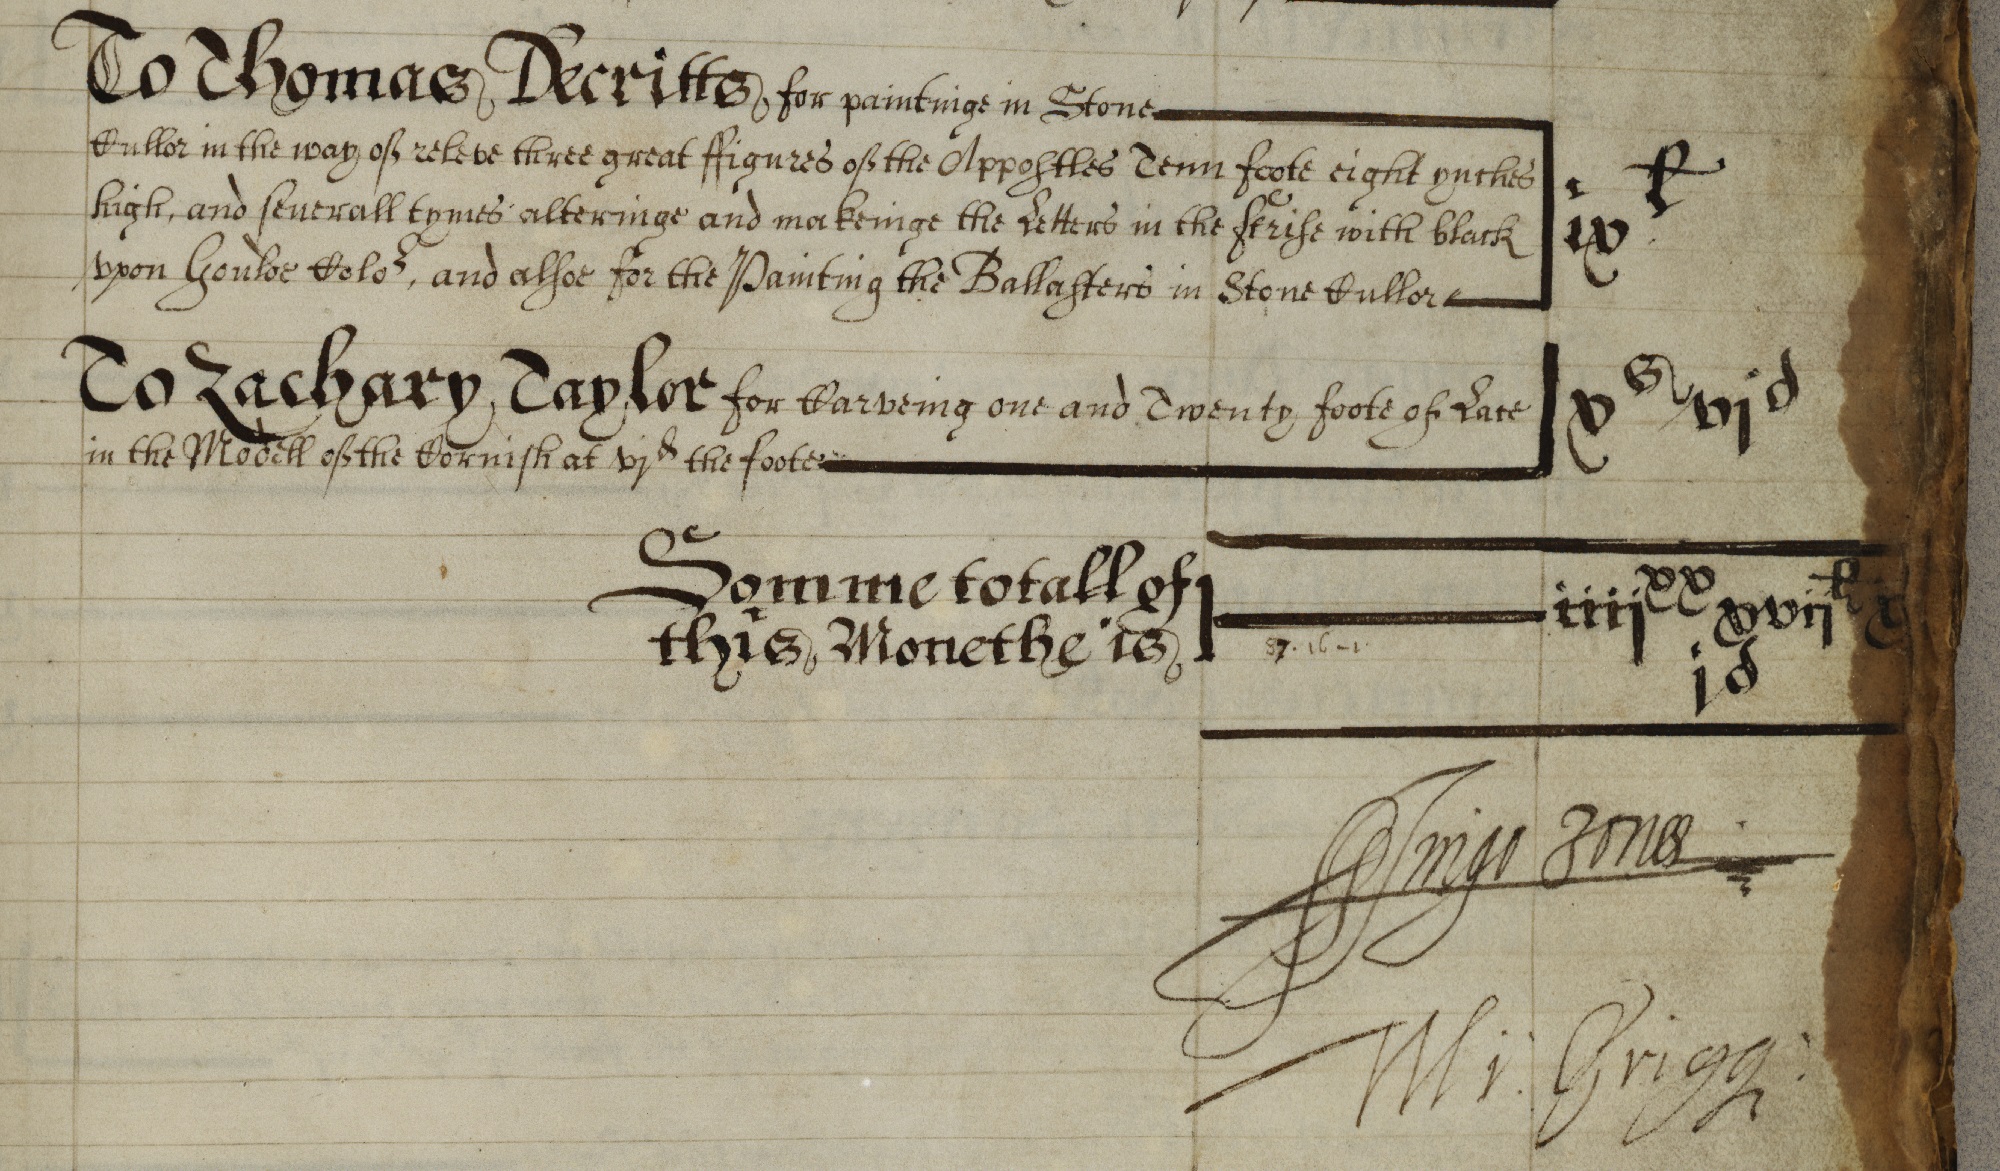 To Thomas Decritts for paintinge in Stone
Cullor in the way of releve three great ffigures of the Appostles Tenn foote eight ynches
high, and severall tymes alteringe and makeinge the Letters in the frise with black
vpon Goulde Color, and alsoe for the Painting the Ballasters in Stone Cullor
ix l
To Zachary Taylor for Carveing one and Twenty foote of Lace
in the Modell of the Cornish at vjd the foote
xs vjd
Somme totall of
this Monethe is
iiijxx xvijli
jd
87-16-1
Inigo Jones
Mi: Grigg: